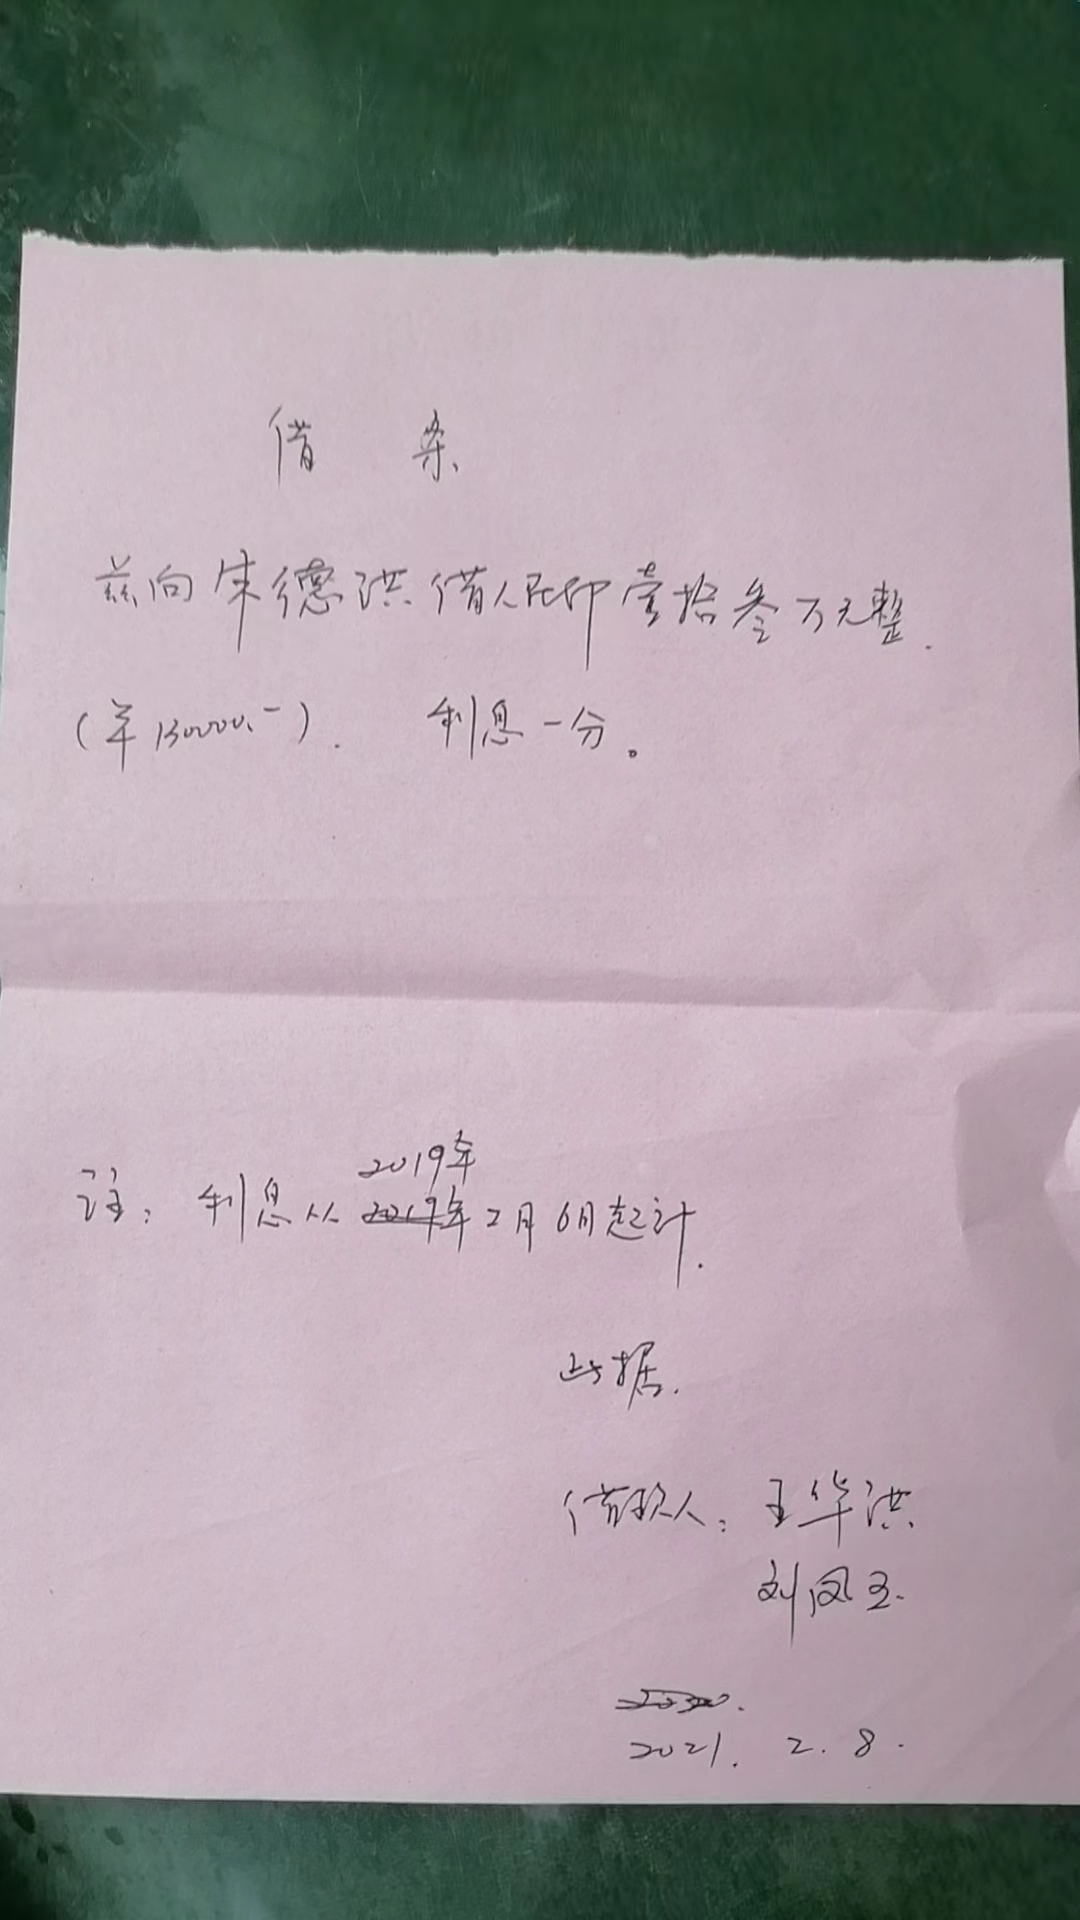 借 条
兹向朱德洪借人民币壹拾叁万元整.
(￥130000.-). 利息一分。
2019年
注: 利息从2019年2月6日起计.
此据.
借款人: 王华洪
刘凤玉.
2021. 2. 8.